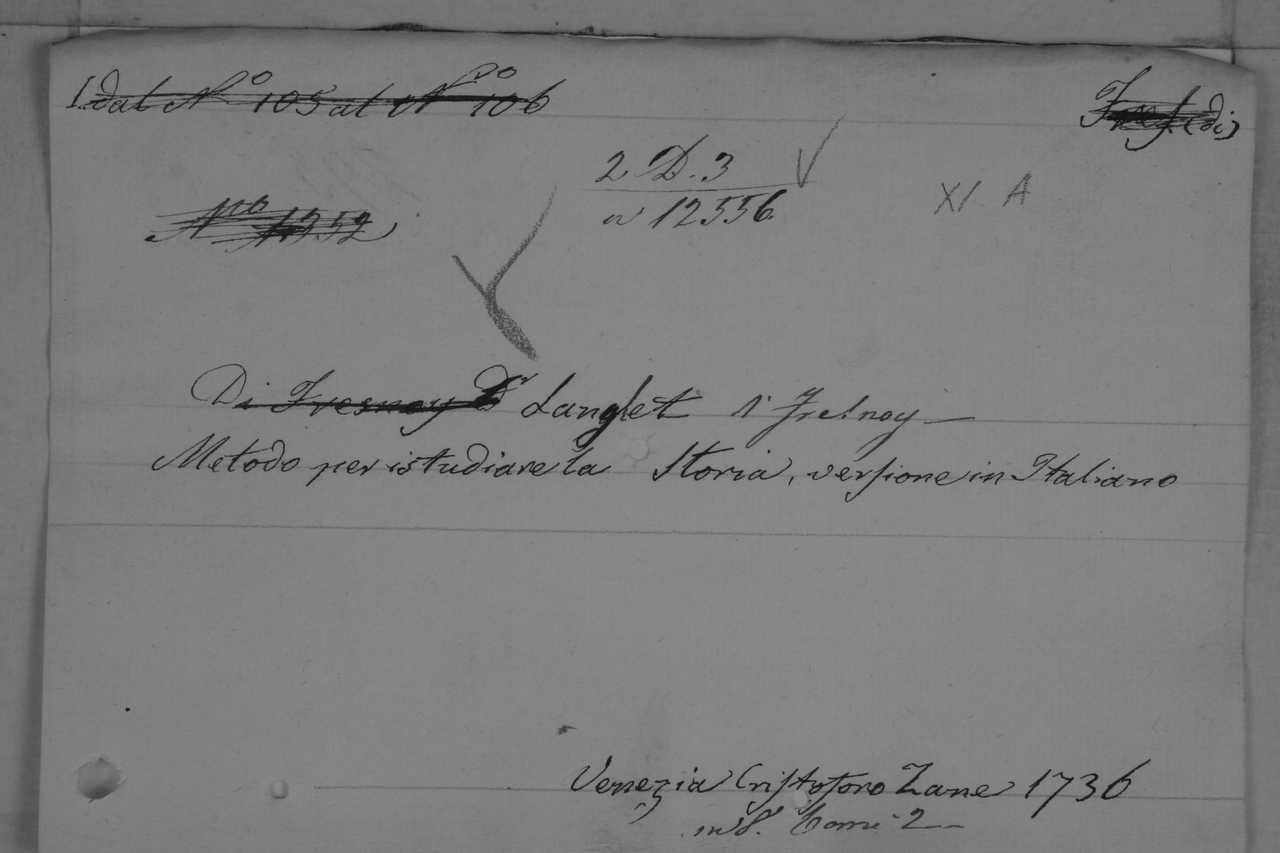 1. dal Nº 105 al Nº 106
2 D. 3
a 12556
XI A
Nro 1252
Di Fresnoy Langlet d' Fresnoy
Metodo per istudiare la Storia, versione in Italiano
Venezia Cristoforo Zane 1736
in 8. Tomi 2